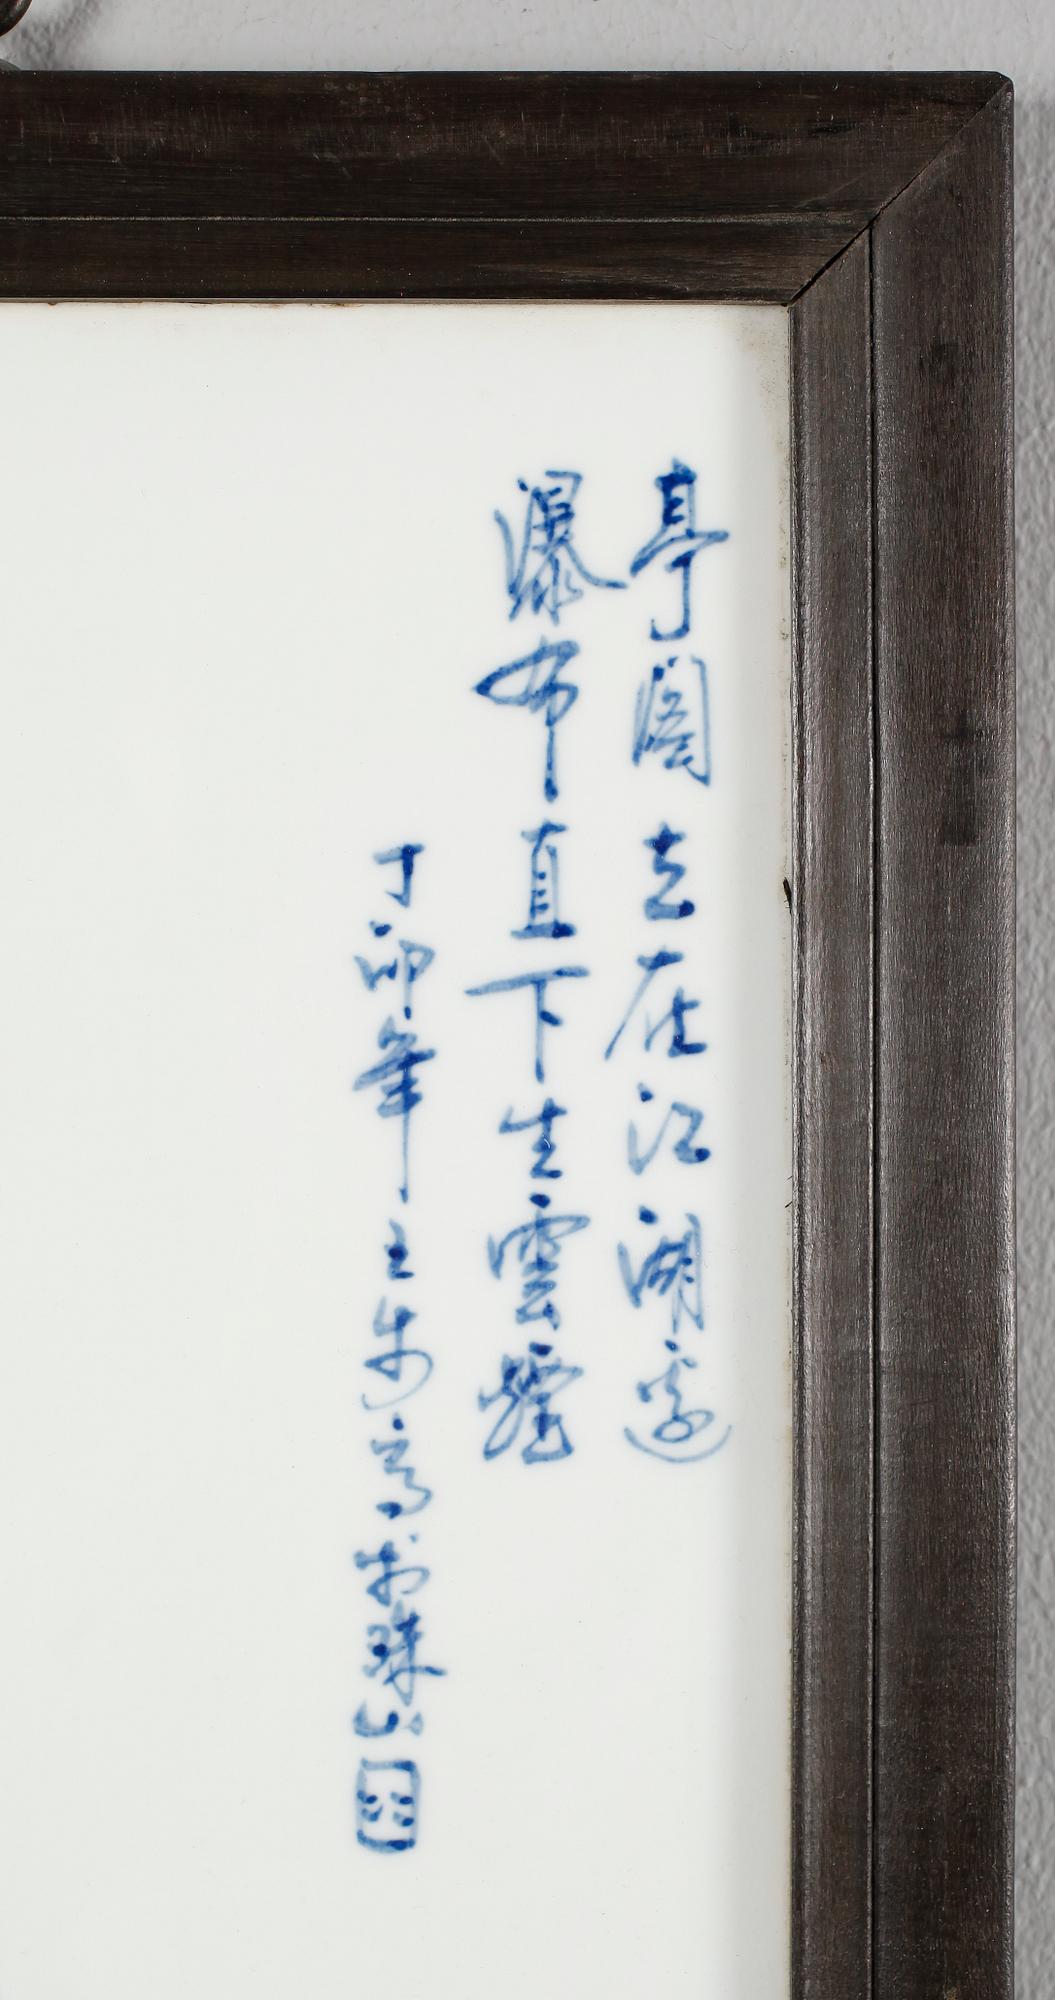 亭阁立在江湖邊
瀑布直下生雲煙
丁卯年王步高於珠山